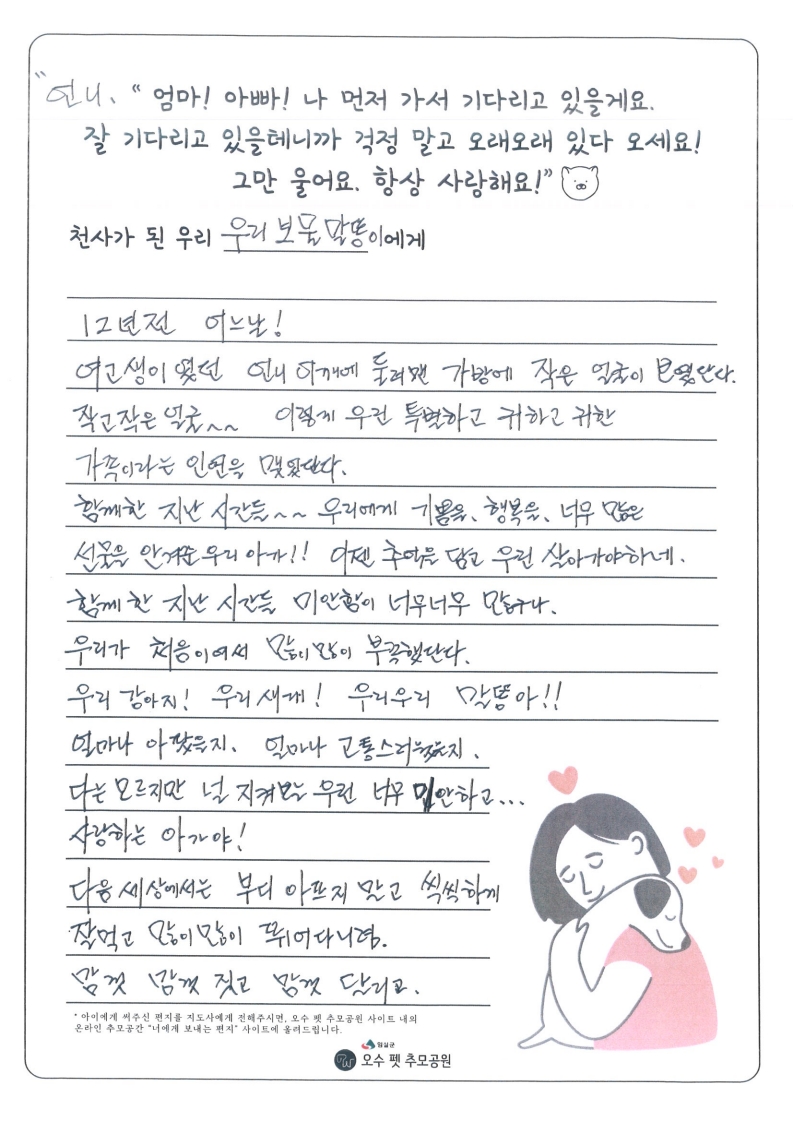 "언니, "엄마! 아빠! 나 먼저 가서 기다리고 있을게요.
잘 기다리고 있을테니까 걱정 말고 오래오래 있다 오세요!
그만 울어요. 항상 사랑해요!"
천사가 된 우리 우리 보물 말똥이에게
12년전 어느날!
여고생이였던 언니 어깨에 둘러맨 가방에 작은 얼굴이 보였단다.
작고작은 얼굴~~ 이렇게 우린 특별하고 귀하고 귀한
가족이라는 인연을 맺었단다.
함께한 지난 시간들~~ 우리에게 기쁨을, 행복을, 너무 많은
선물을 안겨준 우리 아가!! 이젠 추억을 담고 우린 살아가야하네.
함께 한 지난 시간들 미안함이 너무너무 많구나.
우리가 처음이여서 많이많이 부족했단다.
우리 강아지! 우리 새깨! 우리우리 말똥아!!
얼마나 아팠을지. 얼마나 고통스러웠을지.
다는 모르지만 널 지켜보는 우린 너무 미안하고...
사랑하는 아가야!
다음 세상에서는 부디 아프지 말고 씩씩하게
잘먹고 많이많이 뛰어다니렴.
맘껏 맘껏 짖고 맘껏 달리고.
* 아이에게 써주신 편지를 지도사에게 전해주시면, 오수 펫 추모공원 사이트 내의
온라인 추모공간 "너에게 보내는 편지" 사이트에 올려드립니다.
임실군
오수 펫 추모공원